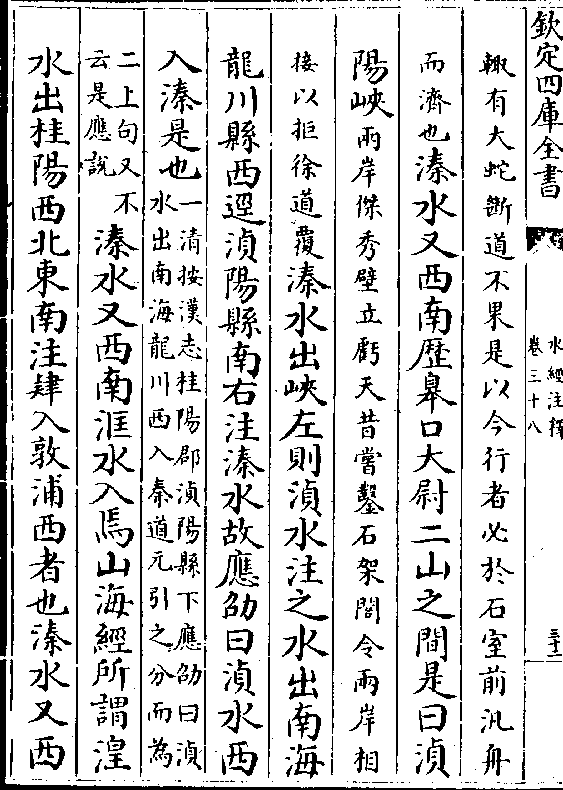 欽定四庫全書
水經注釋
卷三十八
三十二
輙有大蛇斷道不果是以今行者必於石室前汎舟
而濟也溱水又西南歴臯口大尉二山之間是曰湞
陽峽兩岸傑秀壁立虧天昔嘗鑿石架閣令兩岸相
接以拒徐道覆溱水出峽左則湞水注之水出南海
龍川縣西逕湞陽縣南右注溱水故應劭曰湞水西
入溱是也一清按漢志桂陽郡湞陽縣下應劭曰湞水出南海龍川西入秦道元引之分而為
二上句又不云是應說溱水又西南洭水入焉山海經所謂湟
水出桂陽西北東南注肄入敦浦西者也溱水又西